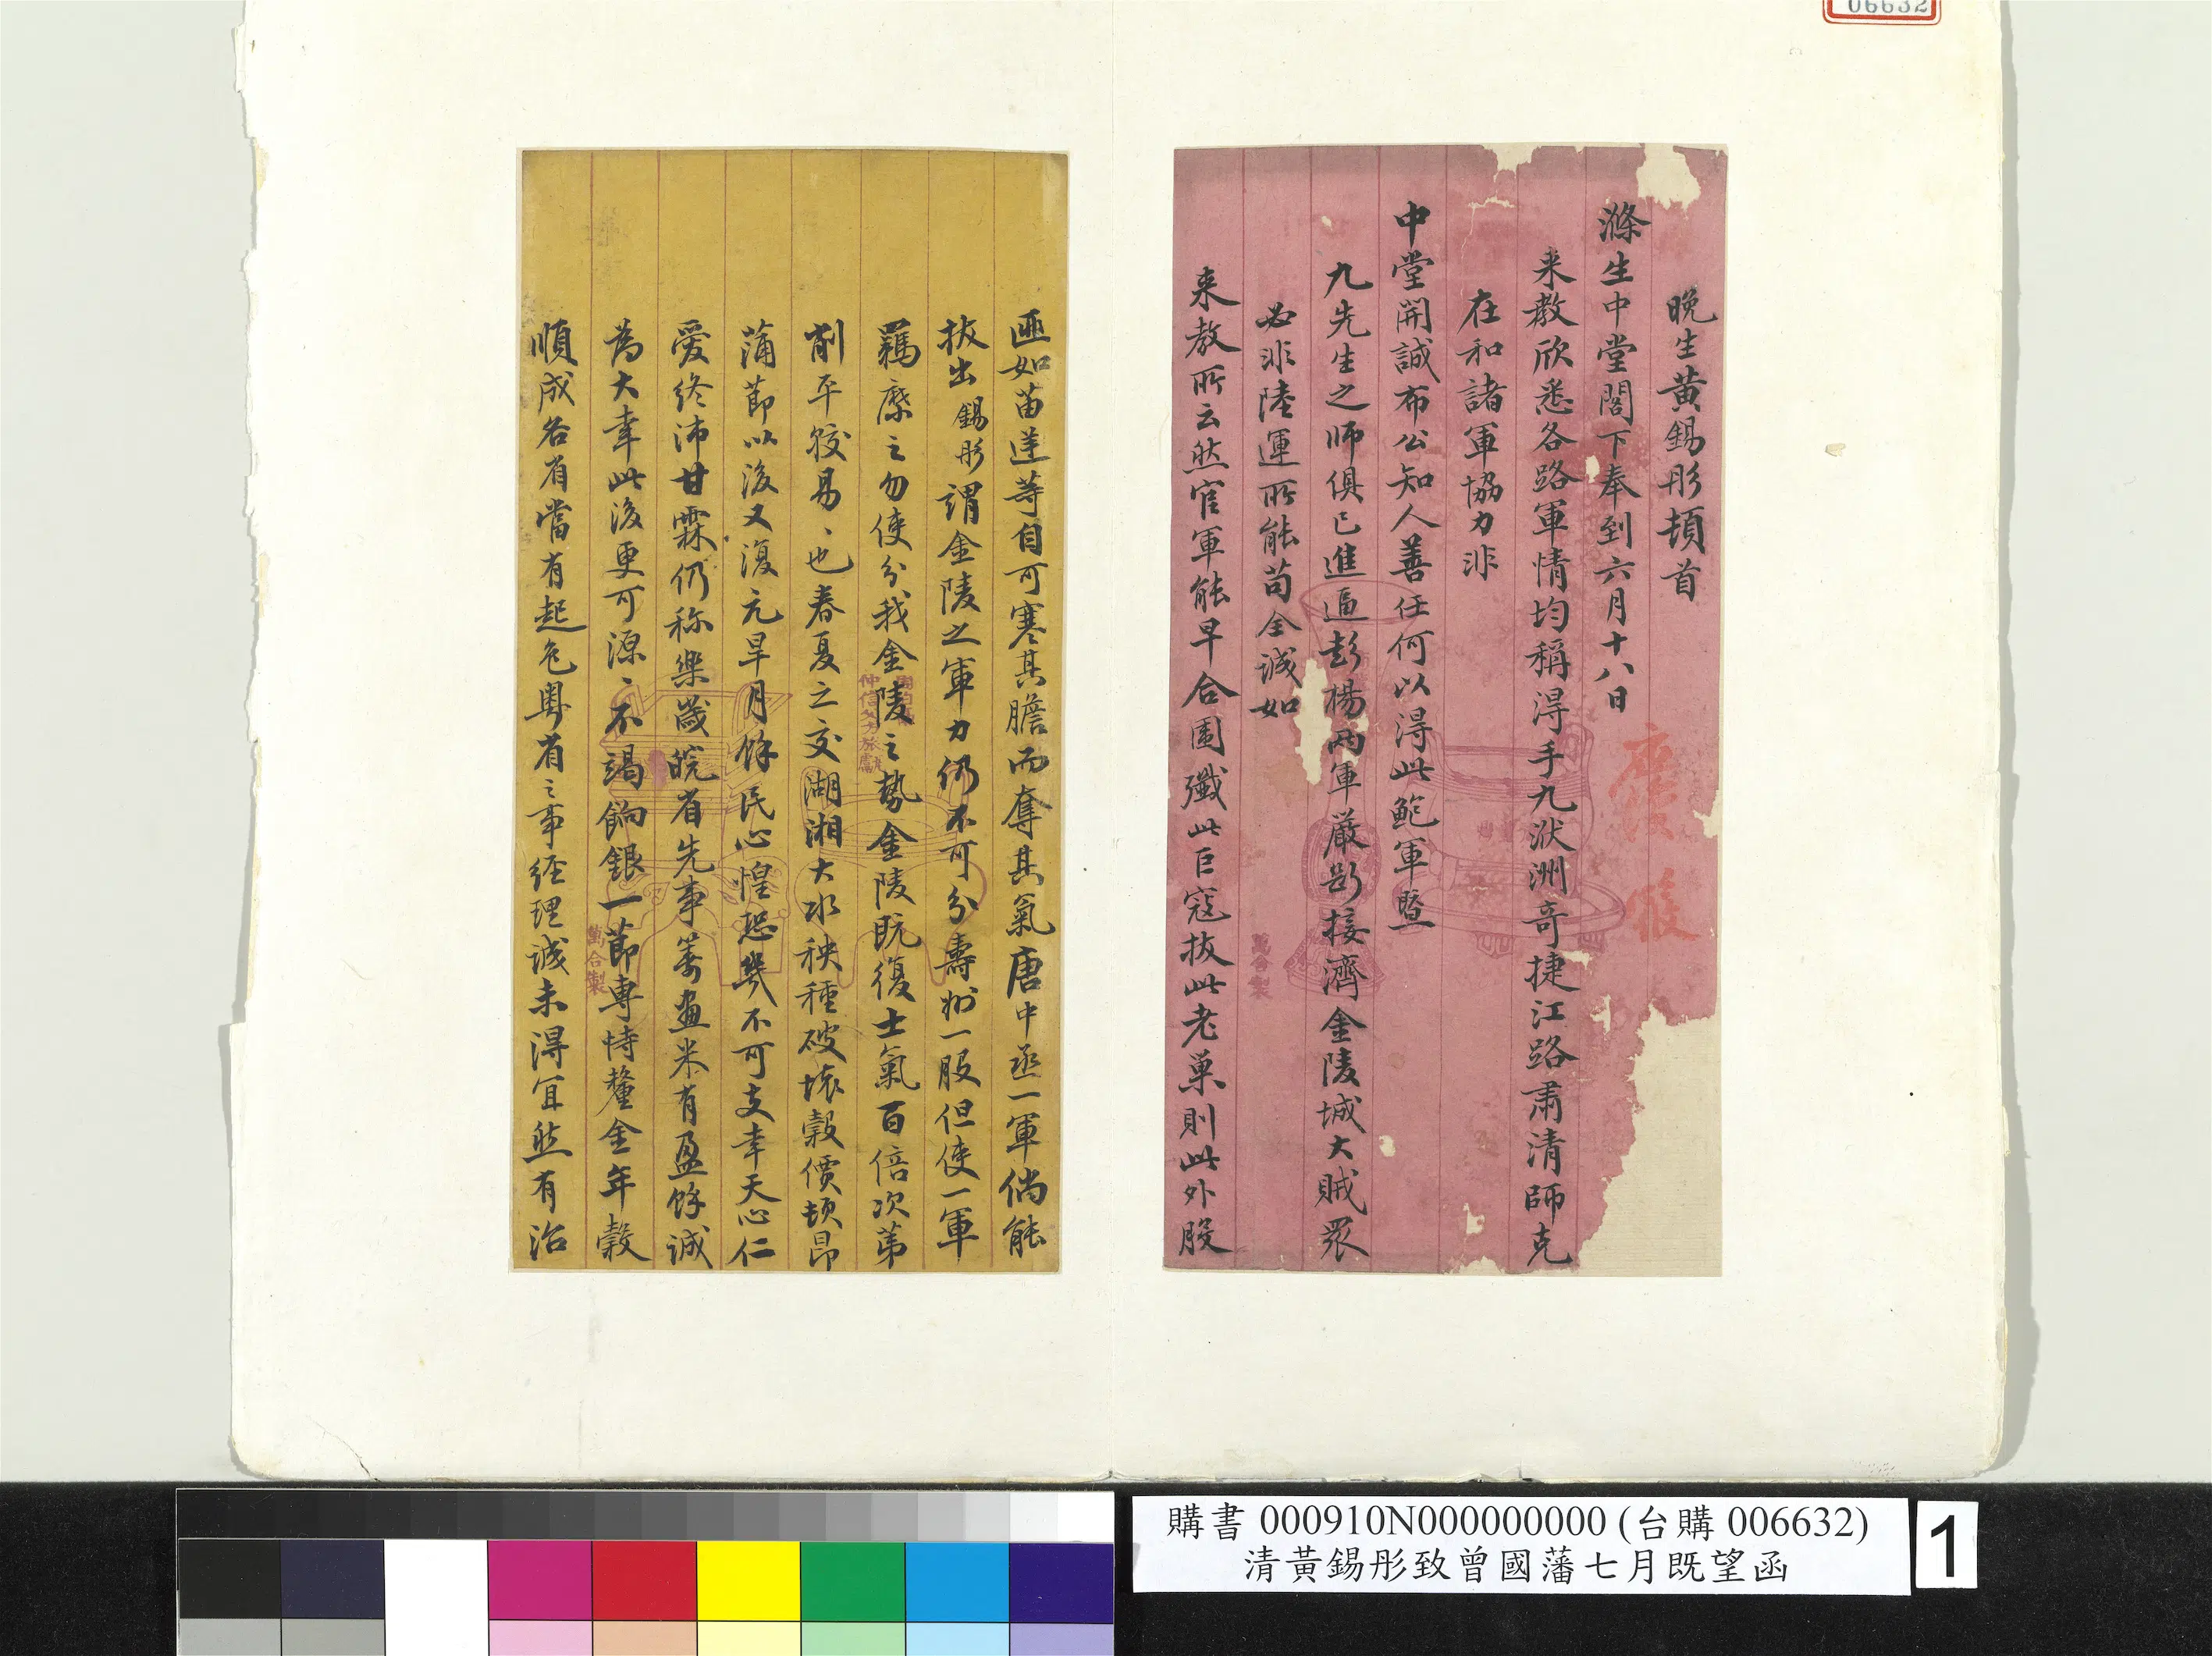 06632
晚生黃錫彤頓首
滌生中堂閣下奉到六月十八日
來教欣悉各路軍情均稱得手九洑洲奇捷江路肅清師克
在和諸軍協力非
中堂開誠布公知人善任何以得此鮑軍暨
九先生之師俱已進逼彭楊兩軍嚴斷接濟金陵城大賊眾
必非陸運所能苟全誠如
來教所云然官軍能早合圍殲此巨寇拔此老巢則此外股
匪如苗逆等自可寒其膽而奪其氣唐中丞一軍倘能
拔出錫彤謂金陵之軍力仍不可分壽州一股但使一軍
羈縻之勿使分我金陵之勢金陵既復士氣百倍次第
削平較易〻也春夏之交湖湘大水秧種破壞穀價頓昂
蒲節以後又復亢旱月餘民心惶恐幾不可支幸天心仁
愛終沛甘霖仍称樂歲皖省先事籌畫米有盈餘誠
為大幸此後更可源〻不竭餉銀一節專恃釐金年穀
順成各省當有起色粵省之事經理誠未得宜然有治
萬合製
萬合製
購書 000910N000000000 (台購 006632)
清黃錫彤致曾國藩七月既望函
1